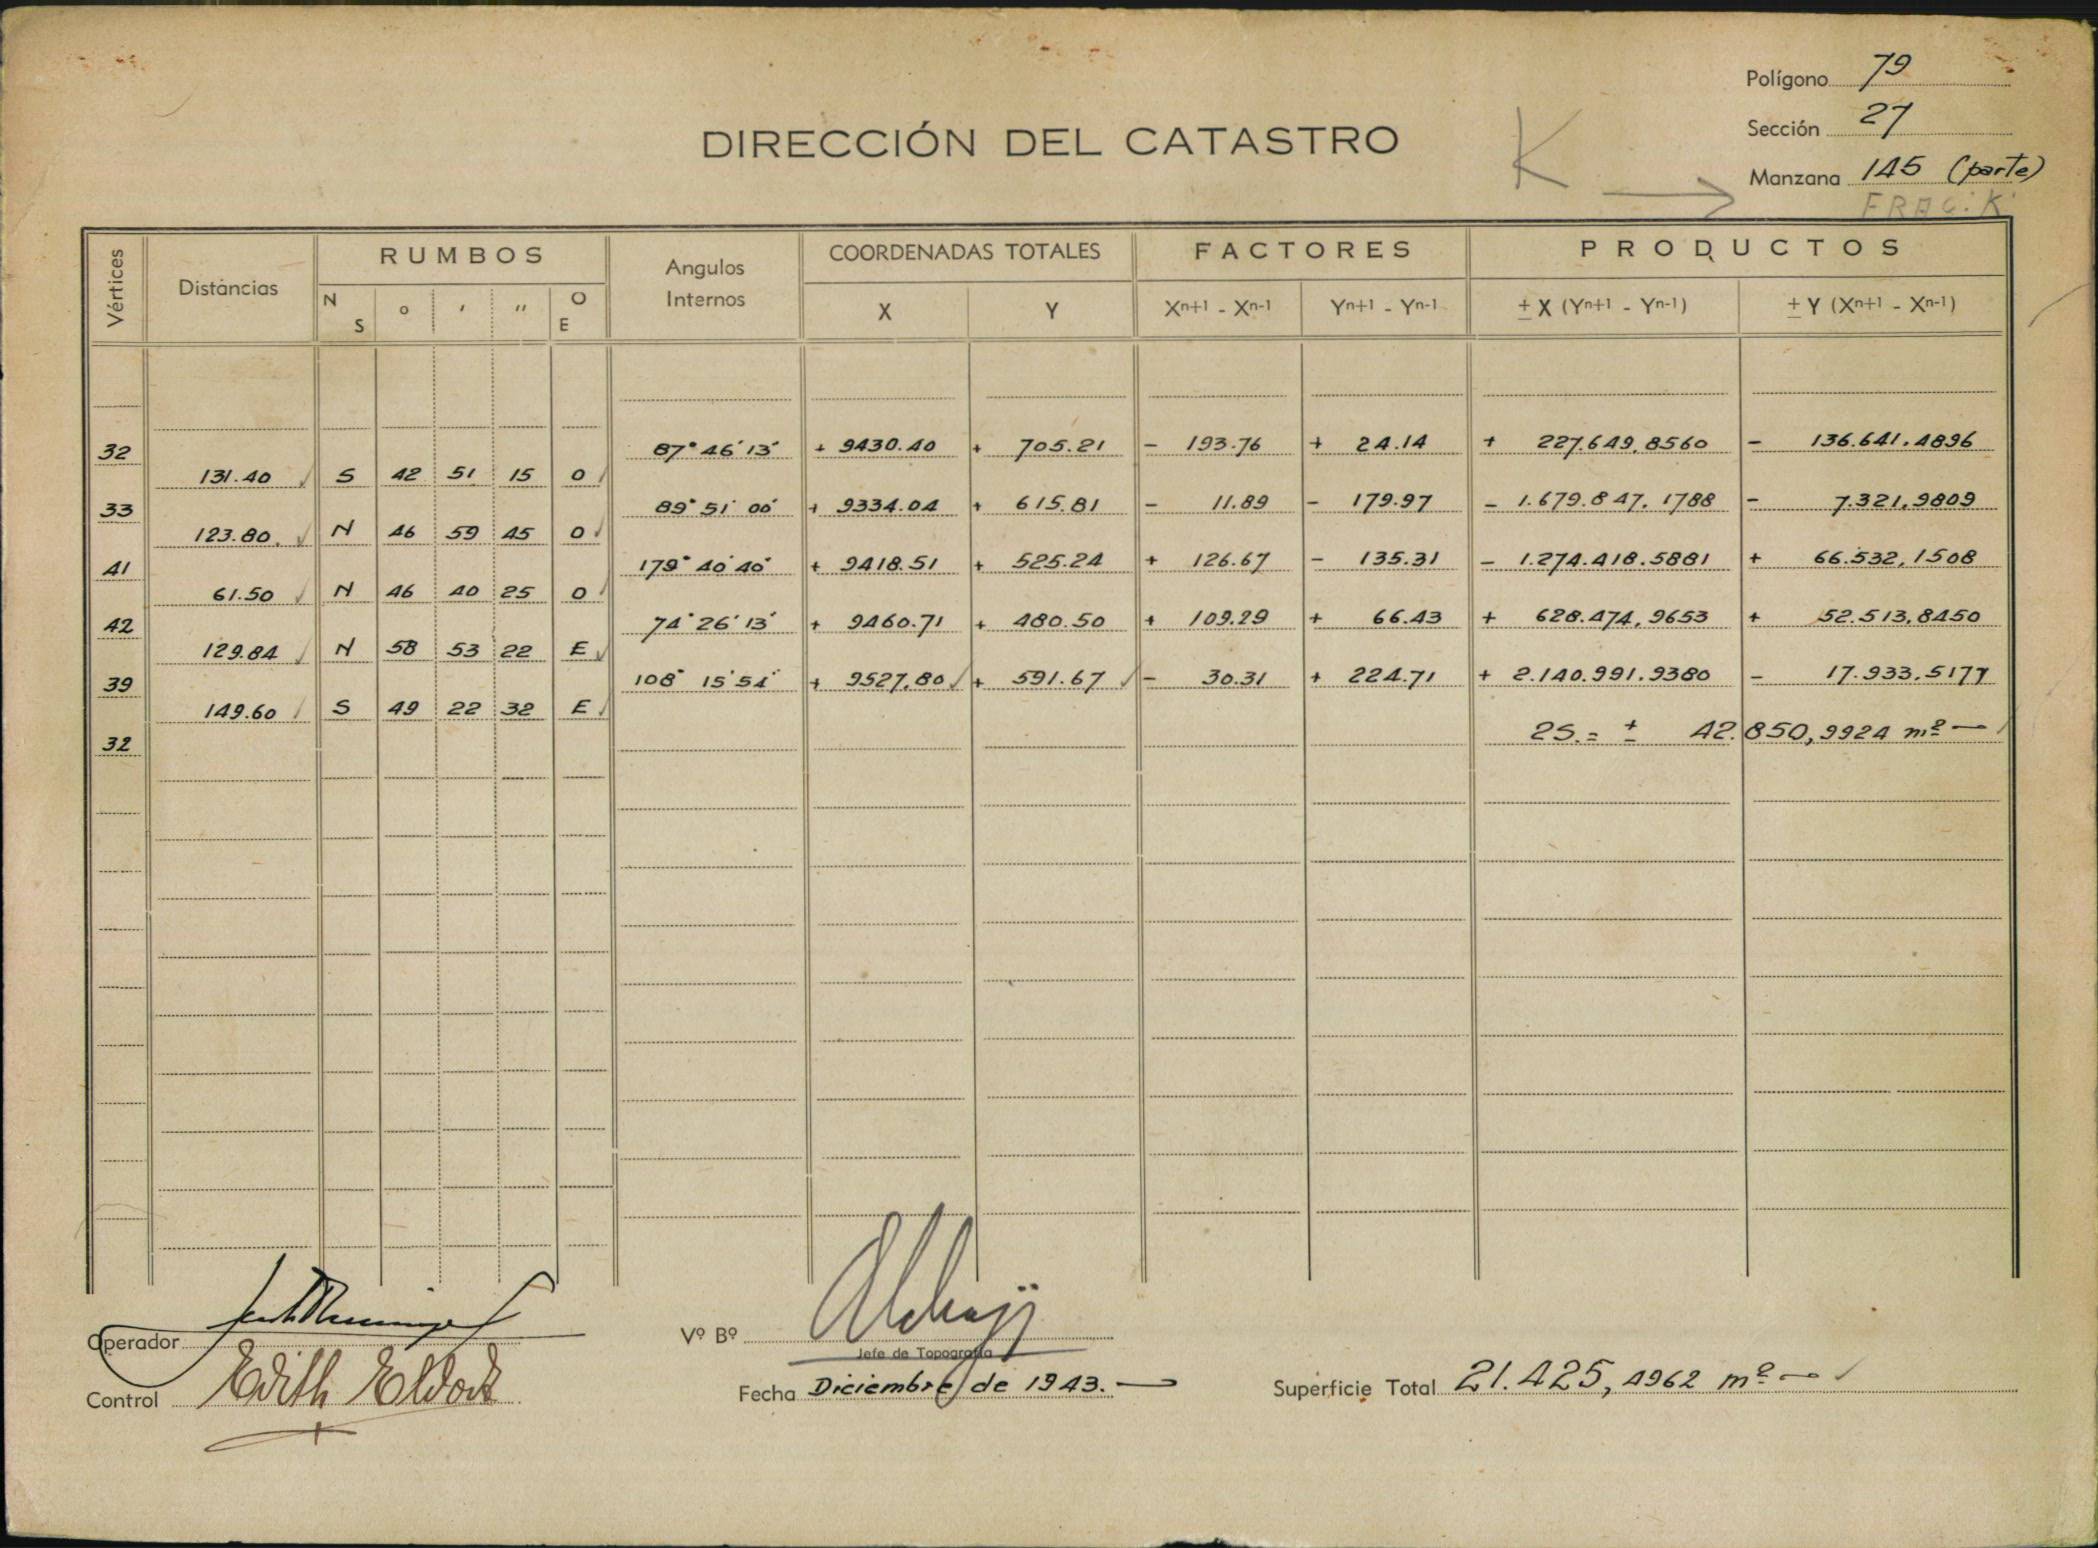 Polígono 79
Sección 27
DIRECCIÓN DEL CATASTRO K
Manzana 145 (parte)
FRAC. K
Vértices Distancias RUMBOS Angulos Internos COORDENADAS TOTALES FACTORES PRODUCTOS
N S ° ' '' O E X Y Xn+1 - Xn-1 Yn+1 - Yn-1 ± X (Yn+1 - Yn-1) ± Y (Xn+1 - Xn-1)
32 87° 46' 13" + 9430.40 + 705.21 - 193.76 + 24.14 + 227.649,8560 - 136.641,4896
131.40 S 42 51 15 O
33 89° 51' 00" + 9334.04 + 615.81 - 11.89 - 179.97 - 1.679.847,1788 - 7.321,9809
123.80 N 46 59 45 O
41 179° 40' 40" + 9418.51 + 525.24 + 126.67 - 135.31 - 1.274.418.5881 + 66.532,1508
61.50 N 46 40 25 O
42 74° 26' 13" + 9460.71 + 480.50 + 109.29 + 66.43 + 628.474,9653 + 52.513,8450
129.84 N 58 53 22 E
39 108° 15' 54" + 9527.80 + 591.67 - 30.31 + 224.71 + 2.140.991.9380 - 17.933,5177
149.60 S 49 22 32 E
32 2S. = ± 42.850,9924 m²
Operador
Vº Bº
Jefe de Topografía
Control Edith
Fecha Diciembre de 1943.
Superficie Total 21.425,4962 m²